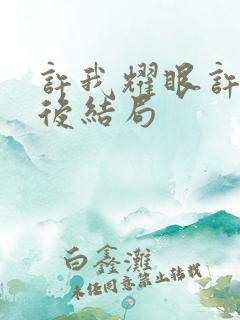 許我耀眼許
後結局
白鑫灘
未经同意禁止转载